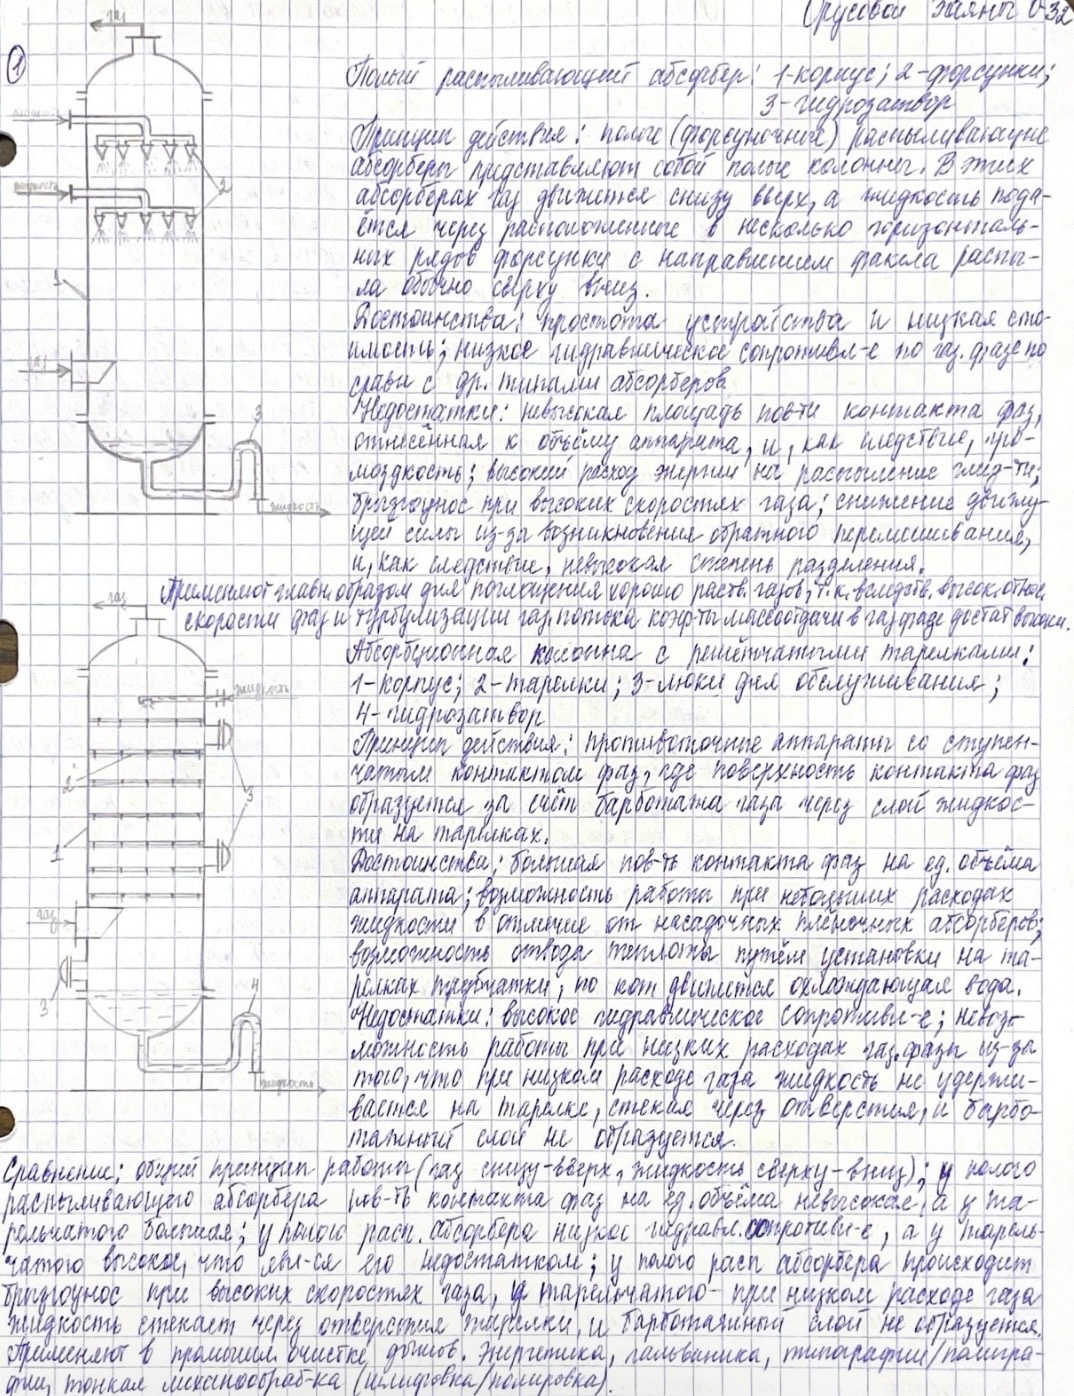 Трусовой Заяны О-32
1
газ
Полый распыливающий абсорбер: 1-корпус; 2-форсунки;
3-гидрозатвор
Принцип действия: полые (форсуночные) распыливающие
абсорберы представляют собой полые колонны. В этих
абсорберах газ движется снизу вверх, а жидкость пода-
ётся через расположенные в несколько горизонталь-
ных рядов форсунки с направлением факела распы-
ла обычно сверху вниз.
Достоинства: простота устройства и низкая сто-
имость; низкое гидравлическое сопротивл-е по газ. фазе по
сравн с др. типами абсорберов
Недостатки: невысокая площадь пов-ти контакта фаз,
отнесённая к объёму аппарата, и, как следствие, гро-
моздкость; высокий расход энергии на распыление жид-ти;
брызгоунос при высоких скоростях газа; снижение движу-
щей силы из-за возникновения обратного перемешивания,
и, как следствие, невысокая степень разделения.
жидкость
жидкость
2
1
газ
3
жидкость
Применяют главн. образом для поглощения хорошо раств. газов, т.к. вследств. высок. относ.
скорости фаз и турбулизации газ. потока коэф-ты массоотдачи в газ фазе достат высоки.
газ
Абсорбционная колонна с решётчатыми тарелками:
1-корпус; 2-тарелки; 3-люки для обслуживания;
4-гидрозатвор
Принцип действия: противоточные аппараты со ступен-
чатым контактом фаз, где поверхность контакта фаз
образуется за счёт барботажа газа через слой жидкос-
ти на тарелках.
Достоинства: большая пов-ть контакта фаз на ед. объёма
аппарата; возможность работы при небольших расходах
жидкости в отличие от насадочных плёночных абсорберов;
возможность отвода теплоты путём установки на та-
релках трубчатки, по кот движется охлаждающая вода.
Недостатки: высокое гидравлическое сопротивл-е; невоз-
можность работы при низких расходах газ. фазы из-за
того, что при низком расходе газа жидкость не удержи-
вается на тарелке, стекая через отверстия, и барбо-
тажный слой не образуется.
жидкость
2
3
1
газ
3
4
жидкость
Сравнение: общий принцип работы (газ снизу-вверх, жидкость сверху-вниз); у полого
распыливающего абсорбера пов-ть контакта фаз на ед. объёма невысокая, а у та-
рельчатого большая; у полого расп. абсорбера низкое гидравл. сопротивл-е, а у тарель-
чатого высокое, что явл-ся его недостатком; у полого расп абсорбера происходит
брызгоунос при высоких скоростях газа, у тарельчатого - при низком расходе газа
жидкость стекает через отверстия тарелки, и барботажный слой не образуется.
Применяют в промышл. очистке дымов. Энергетика, гальваника, типографии/полигра-
фии, тонкая механообраб-ка (шлифовка/полировка).